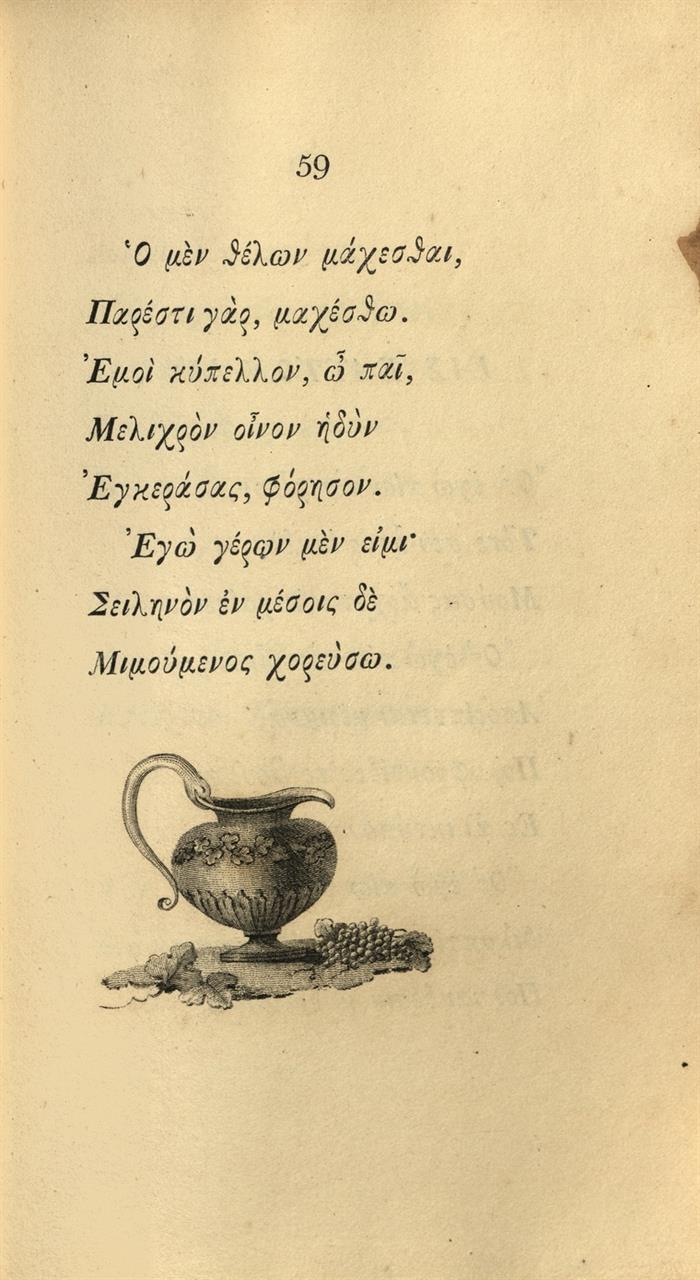 59
Ὁ μὲν θέλων μάχεσθαι,
Παρέστι γὰρ, μαχέσθω.
Ἐμοὶ κύπελλον, ὦ παῖ,
Μελιχρὸν οἶνον ἡδὺν
Ἐγκεράσας, φόρησον.
Ἐγὼ γέρων μὲν εἰμι·
Σειληνὸν ἐν μέσοις δὲ
Μιμούμενος χορεὺσω.